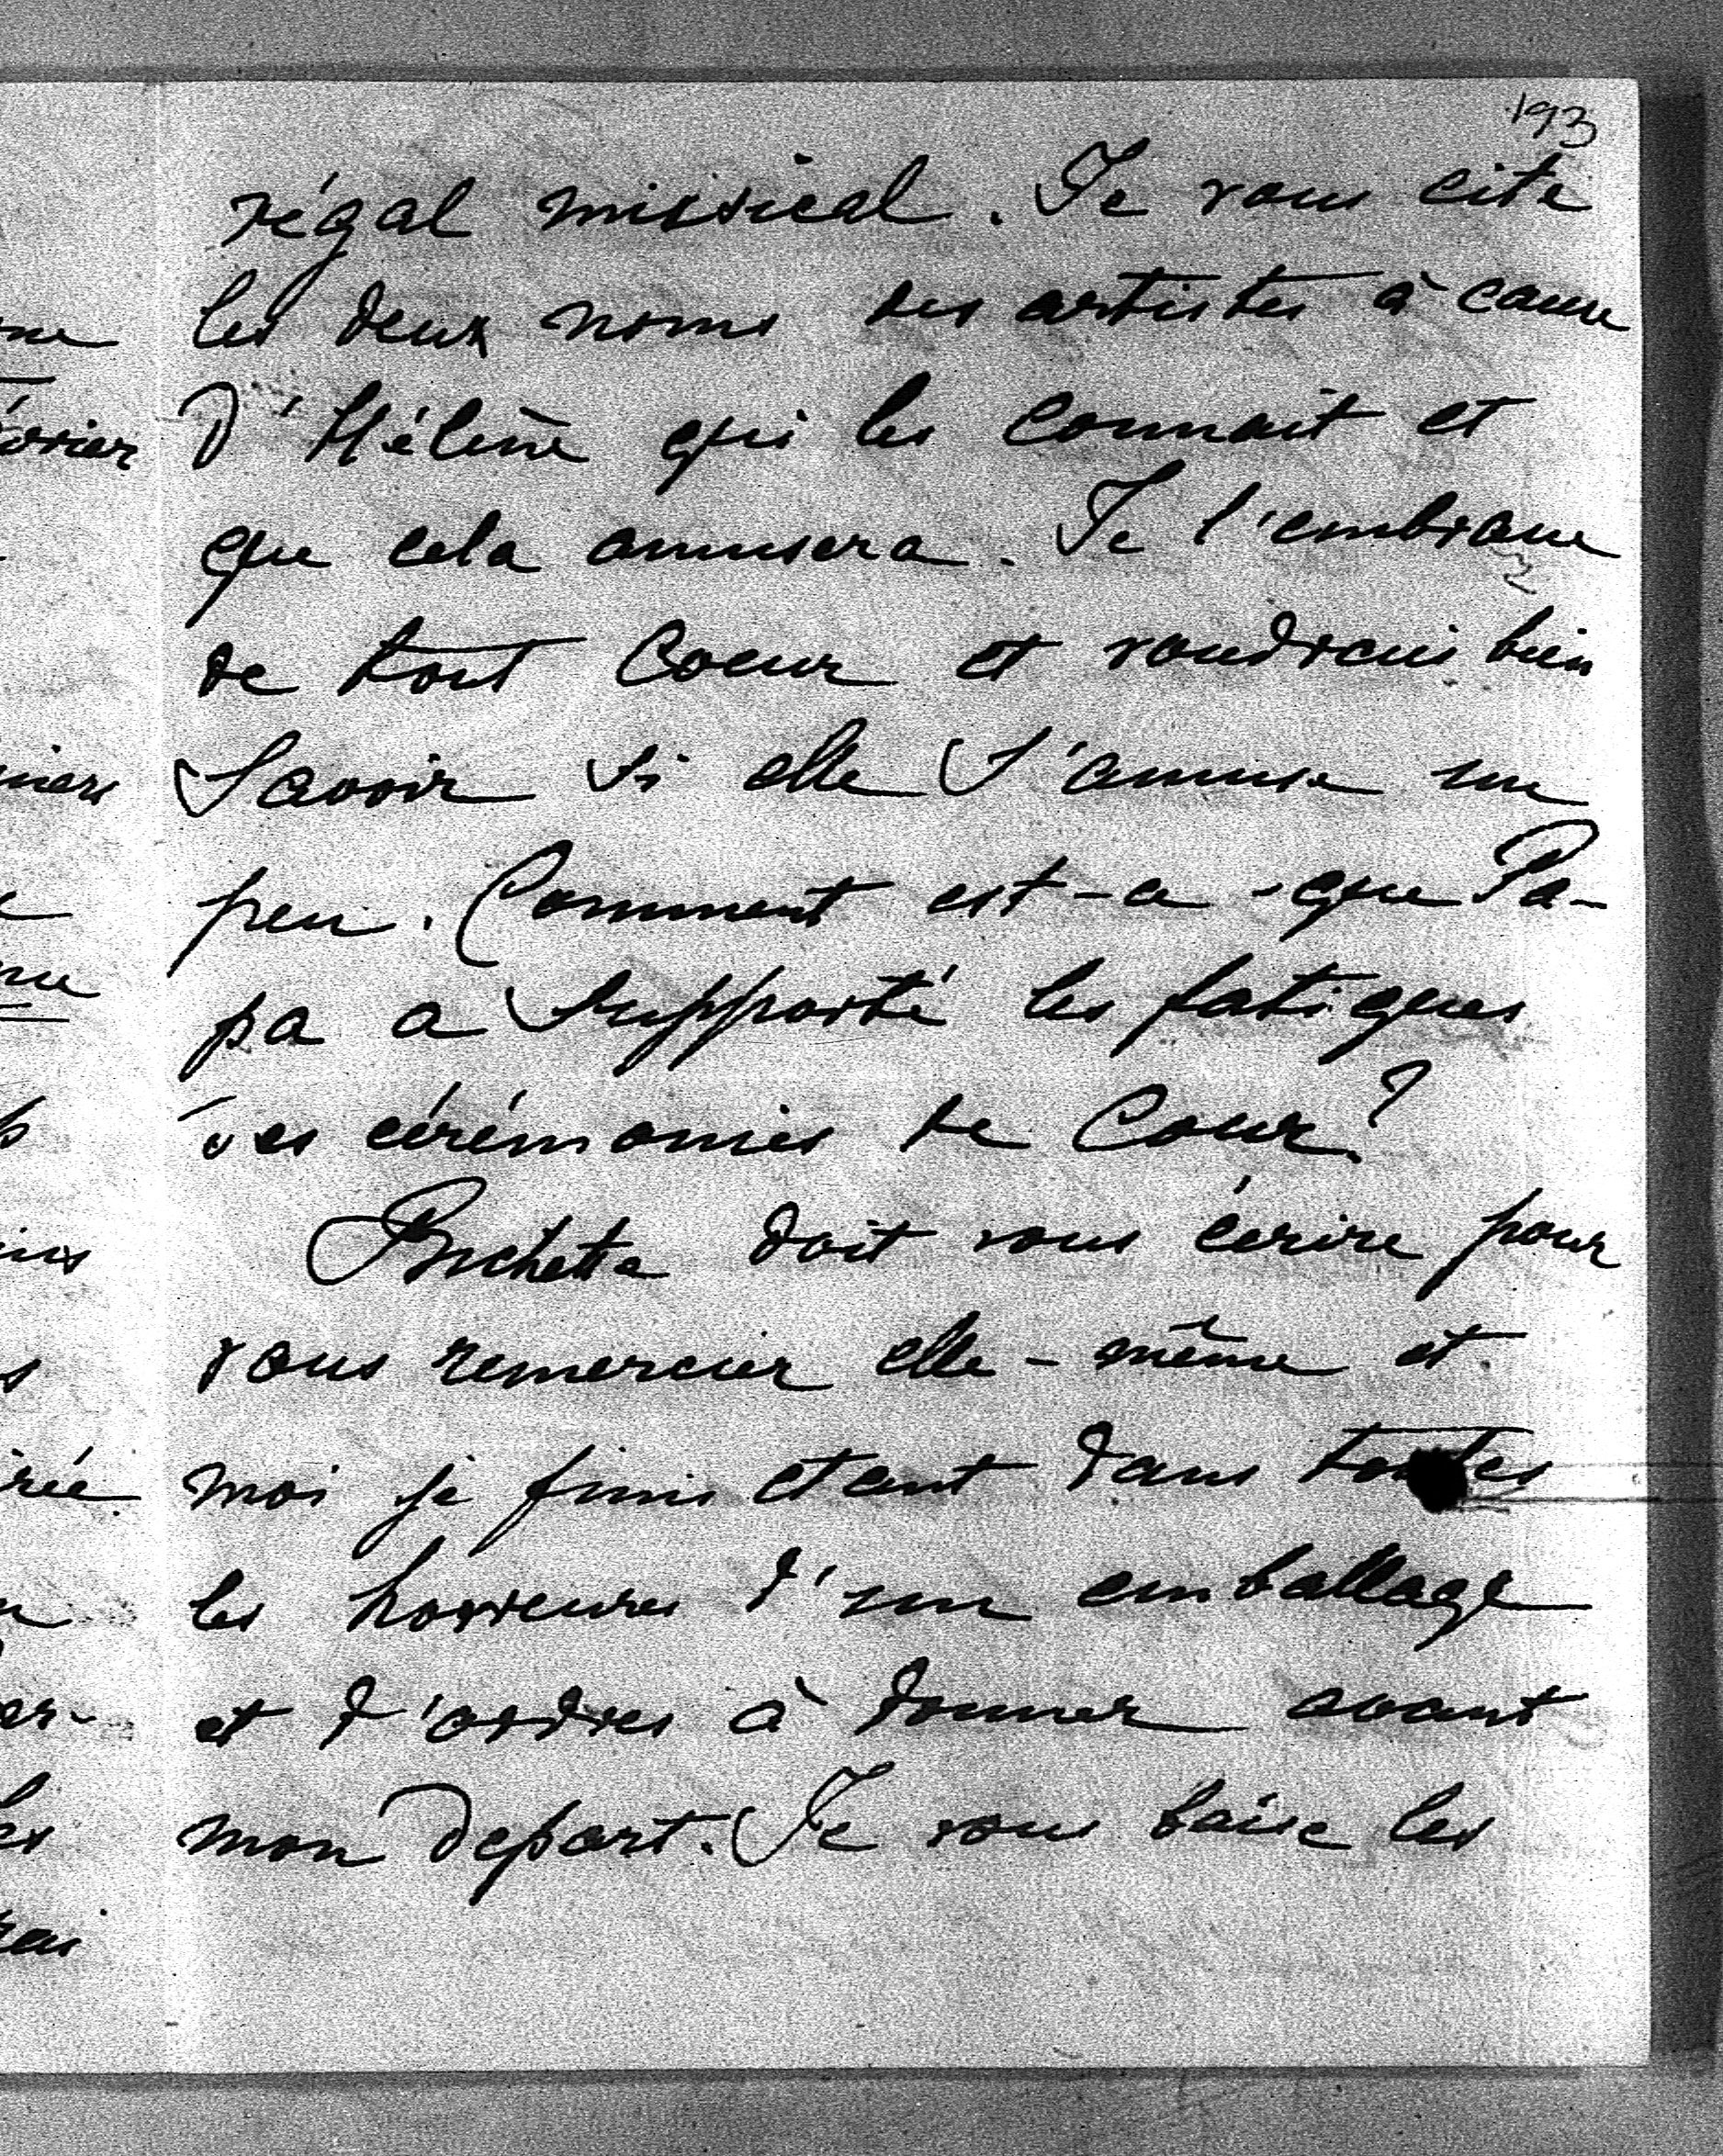 193
régal musical. Je vous cite
les deux noms des artistes à cause
d'Hélène qui les connait et
que cela amusera. Je l'embrasse
de tout coeur et voudrais bien
savoir si elle s'amuse un
peu. Comment est-ce que Pa-
pa a supporté les fatigues
des cérémonies de Cour?
Bichette doit vous écrire pour
vous remercier elle-même et
moi je finis etant dans toutes
les horreures d'un emballage
et d'ordres à donner avant
mon depart. Je vous baise les